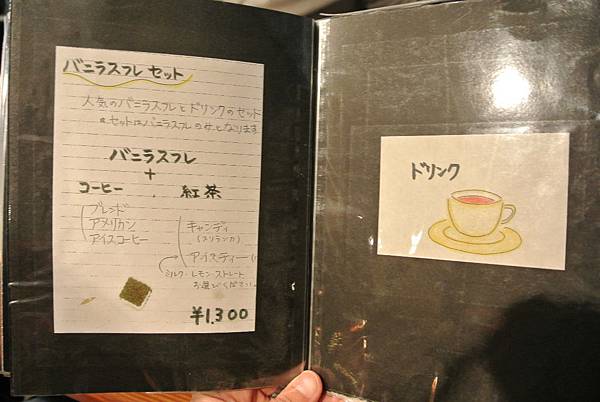 バニラスフレ セット
人気のバニラスフレとドリンクのセット
※セットはバニラスフレのみとなります
バニラスフレ
+
コーヒー . 紅茶
ブレンド
アメリカン
アイスコーヒー
キャンディ
(スリランカ)
アイスティー
ミルク・レモン・ストレート
お選びください
¥1,300
ドリンク